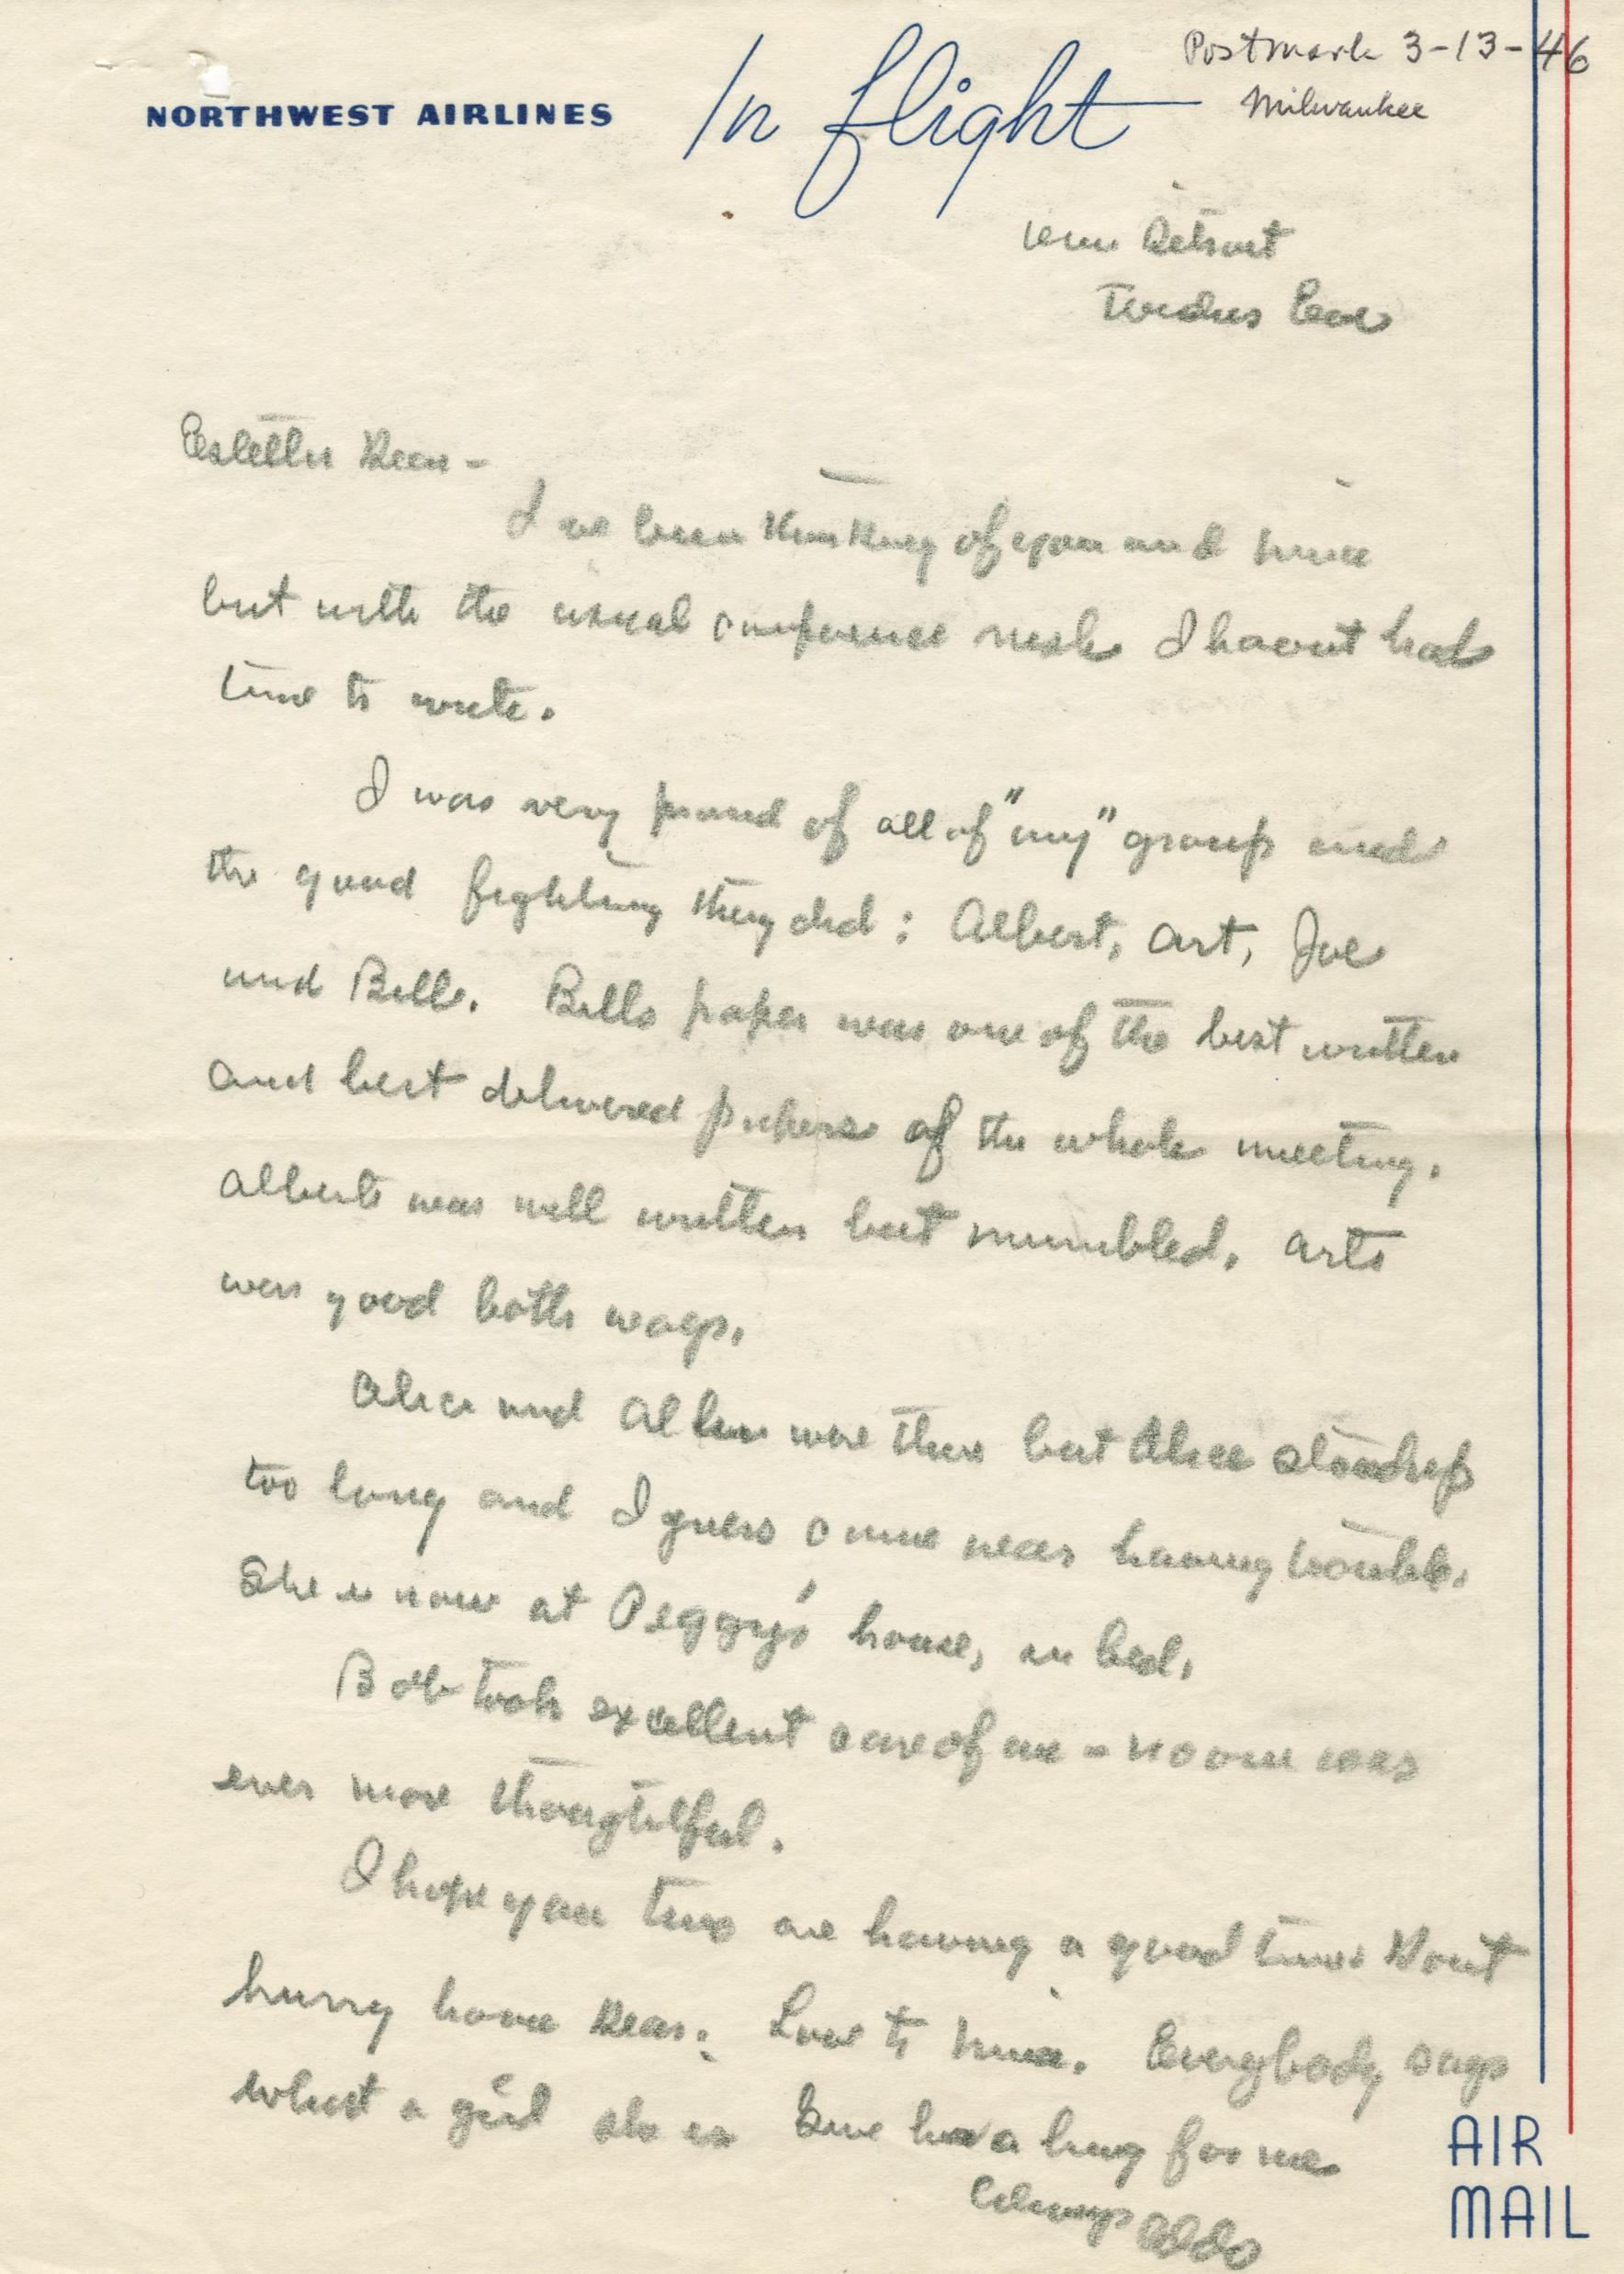 Postmark 3-13-46
NORTHWEST AIRLINES In flight Milwaukee
Detroit
Tuesday Eve
Estella Dear -
I've been thinking of you and Nina
but with the usual conference rush I havent had
time to write.
I was very proud of all of "my" group and
the good fighting they did: Albert, Art, Joe
and Bill. Bills paper was one of the best written
and best delivered papers of the whole meeting.
Alberts was well written but mumbled. Arts
was good both ways.
Alice and Allen were there but Alice stood up
too long and I guess came near having trouble.
She is now at Peggy's house, in bed.
Bob took excellent care of me - no one was
ever more thoughtful.
I hope you two are having a good time. Dont
hurry home Dear. Love to Nina. Everybody says
what a girl she is Give her a hug for me
Always Aldo
AIR
MAIL